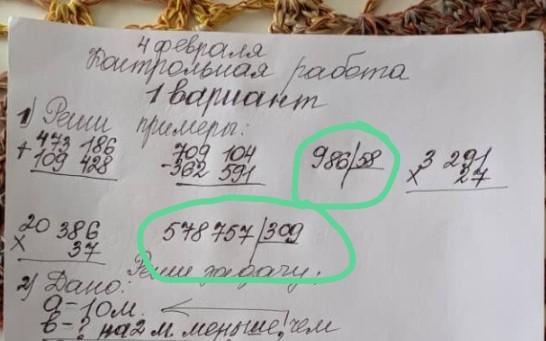 4 февраля
Контрольная работа
1 вариант
1) Реши примеры:
+ 473 186 - 709 104 986 | 58 × 3 291
109 428 362 591 27
× 20 386 578 757 | 309
37
Реши задачу:
2) Дано:
a = 10 м.
b - ? на 2 м. меньше, чем